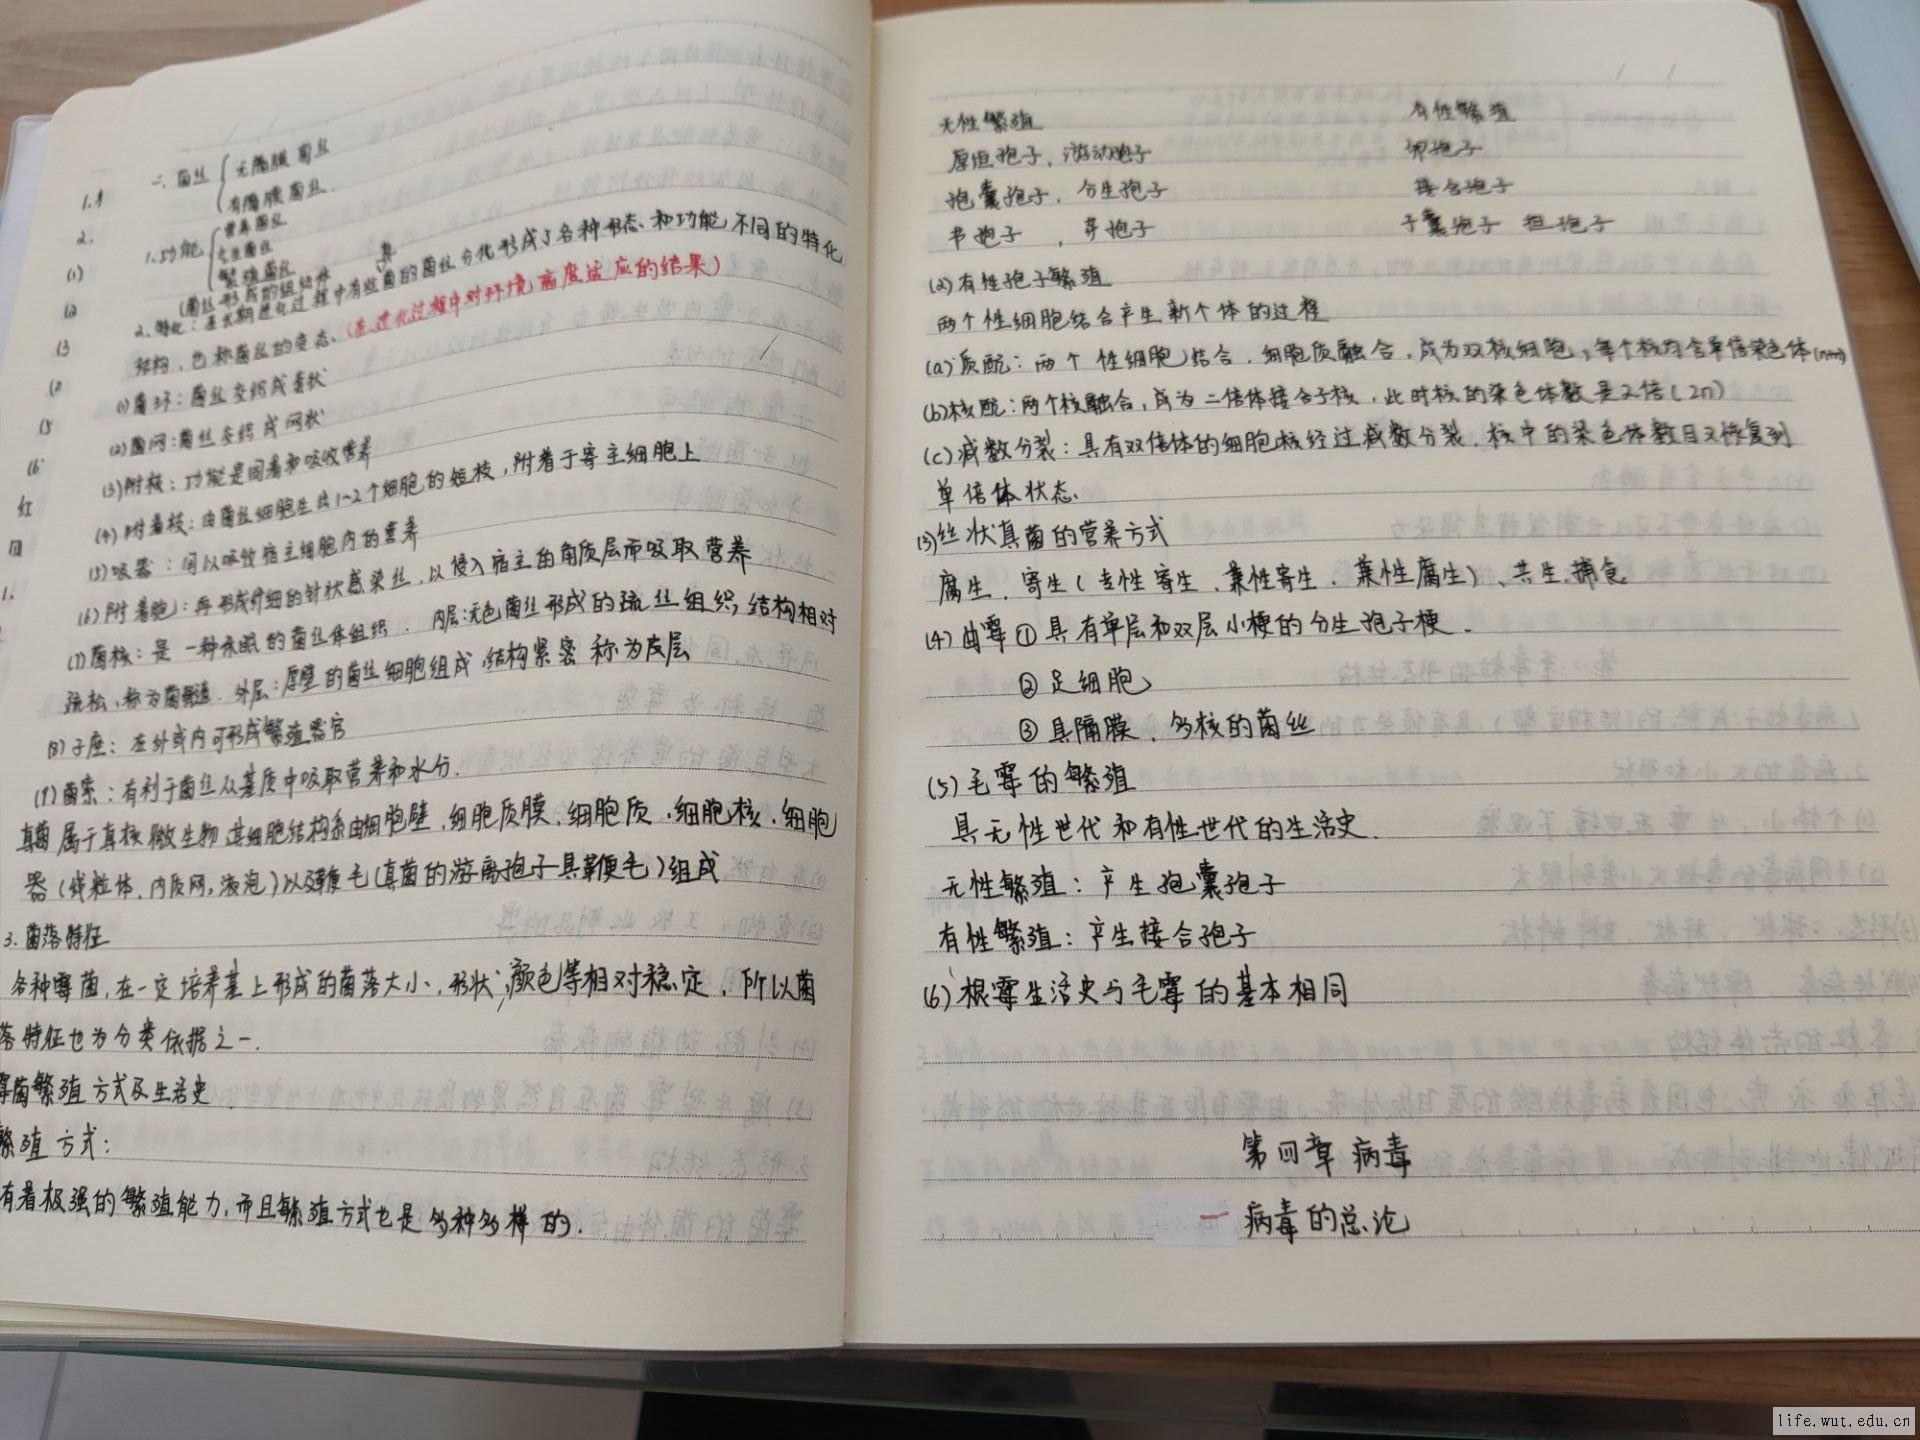 1.
2.
(1)
(2
(3
(5
(6
红
四
1.
二、菌丝
无隔膜菌丝
有隔膜菌丝.
1.功能
营养菌丝
气生菌丝
繁殖菌丝
(菌丝形成的组织体
2.特化:在长期进化过程中有些真菌的菌丝分化形成了各种形态、和功能不同的特化
结构,也称菌丝的变态、(在进化过程中对环境高度适应的结果)
(1)菌环:菌丝交织成套状
(2)菌网:菌丝交织成网状
(3)附枝:功能是固着和吸收营养
(4)附着枝:由菌丝细胞生出1~2个细胞的短枝,附着于寄主细胞上
(5)吸器:用以吸收宿主细胞内的营养
(6)附着胞:再形成纤细的针状感染丝,以侵入宿主的角质层而吸取营养
(7)菌核:是一种休眠的菌丝体组织.内层:无色菌丝形成的疏丝组织,结构相对
疏松、称为菌髓.外层:厚壁的菌丝细胞组成,结构紧密 称为皮层
(8)子座:在外或内可形成繁殖器官
(9)菌索:有利于菌丝从基质中吸取营养和水分.
真菌属于真核微生物,其细胞结构系由细胞壁、细胞质膜、细胞质、细胞核、细胞
器(线粒体、内质网、液泡)以及鞭毛(真菌的游离孢子具鞭毛)组成
3.菌落特征
各种霉菌,在一定培养基上形成的菌落大小、形状、颜色等相对稳定,所以菌
落特征也为分类依据之一.
霉菌繁殖方式及生活史
繁殖方式:
有着极强的繁殖能力,而且繁殖方式也是多种多样的.
无性繁殖 有性繁殖
厚垣孢子,游动孢子 卵孢子
孢囊孢子,分生孢子 接合孢子
节孢子,芽孢子 子囊孢子 担孢子
(2)有性孢子繁殖
两个性细胞结合产生新个体的过程
(a)质配:两个性细胞结合,细胞质融合,成为双核细胞,每个核均含单倍染色体(n+n)
(b)核配:两个核融合,成为二倍体接合子核,此时核的染色体数是2倍(2n)
(c)减数分裂:具有双倍体的细胞核经过减数分裂,核中的染色体数目又恢复到
单倍体状态、
(3)丝状真菌的营养方式
腐生、寄生(专性寄生、兼性寄生、兼性腐生)、共生、捕食
(4)曲霉①具有单层和双层小梗的分生孢子梗.
②足细胞
③具隔膜、多核的菌丝
(5)毛霉的繁殖
具无性世代和有性世代的生活史.
无性繁殖:产生孢囊孢子
有性繁殖:产生接合孢子
(6)根霉生活史与毛霉的基本相同
第四章 病毒
一 病毒的总论
life.wut.edu.cn